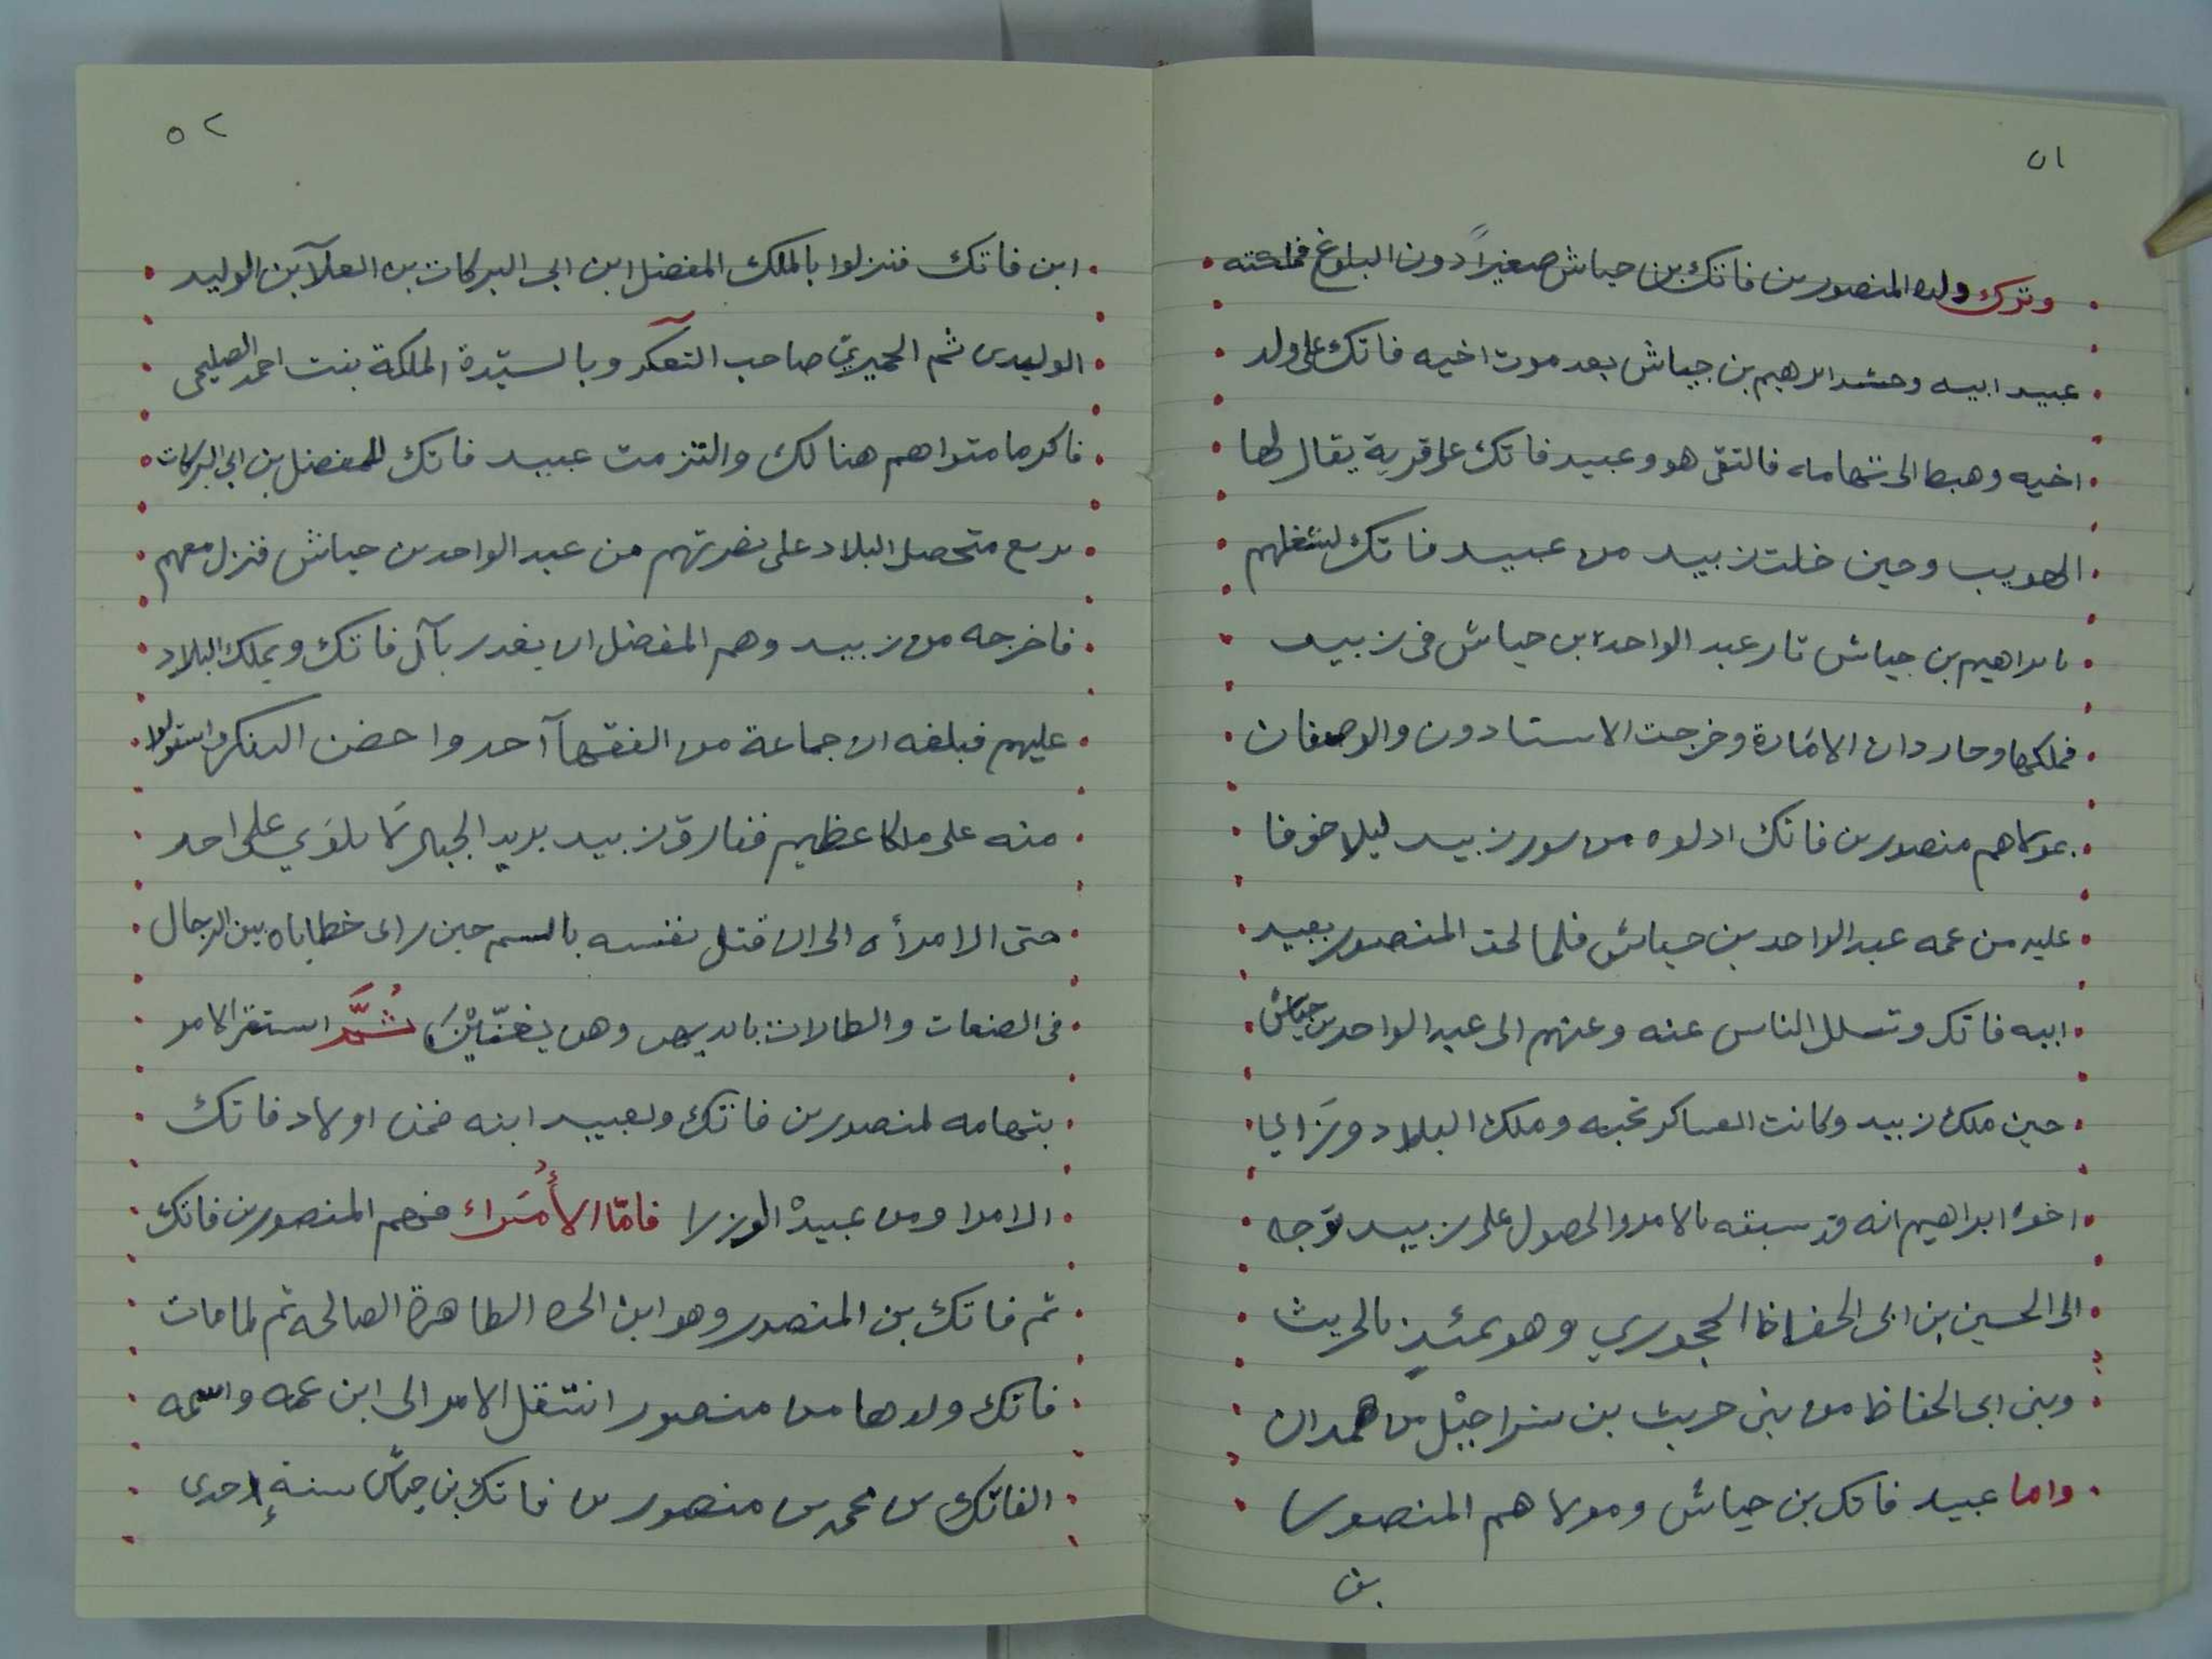 ٥١
وترك ولده المنصور بن فاتك بن جياش صغيراً دون البلوغ فملكته
عبيد ابيه وحشد ابرهيم بن جياش بعد موت اخيه فاتك على ولد
اخيه وهبط الى تهامه فالتقى هو وعبيد فاتك على قرية يقال لها
الهويب وحين خلت زبيد من عبيد فاتك لشغلهم
بابراهيم بن جياش ثار عبد الواحد ابن جياش فى زبيد
فملكها وحاز دار الامَارة وخرجت الاستادون والوصفان
بمولاهم منصور بن فاتك ادلوه من سور زبيد ليلا خوفا
عليه من عمه عبد الواحد بن جياش فلما لحق المنصور بعبيد
ابيه فاتك وتسلل الناس عنه وعنهم الى عبد الواحد بن جياش
حين ملك زبيد وكانت العساكر تحبه وملك البلاد ورَاى
اخوه ابراهيم انه قد سبقه بالامر والحصول على زبيد توَجه
الى الحسين بن ابى الحفاظ الحجوري وهو يومئذٍ بالحريث
وبنى ابى الحفاظ من بنى حريث بن شراحيْل من همدان
واما عبيد فاتك بن جياش ومولاهم المنصور
بن
٥٢
ابن فاتك فنزلوا بالملك المفضل ابن ابى البركات بن العلآ بن الوليد
الوليدى ثم الحميريّ صاحب التعكر وبالسيّدة الملكة بنت احمد الصليحى
فاكرما مثواهم هنالك والتزمت عبيد فاتك للمفضل بن ابى البركات
بربع متحصل البلاد على نصرتهم من عبد الواحد بن جياش فنزل معهم
فاخرجه من زبيد وهم المفضل ان يغدر بآل فاتك ويملك البلاد
عليهم فبلغه ان جماعة من الفقهآ اخذوا حصن التعكر واستولوا
منه على ملكا عظيم ففارق زبيد يريد الجبال لَا يلوَي على احد
حتى الامرأه الى ان قتل نفسه بالسم حين راى خطاياه بين الرجال
فى الصنعات والطارات بايديهن وهن يغنّيْنَ ثُمَّ استقر الامر
بتهامه لمنصور بن فاتك ولعبيد ابنه فمن اولاد فاتك
الامرا ومن عبيدْ الوزرا فامّا الأُمَراء فمنهم المنصور بن فاتك
ثم فاتك بن المنصور وهو ابن الحره الطاهرة الصالحه ثم لما مات
فاتك ولدها من منصور انتقل الامر الى ابن عمه واسمه
الفاتك بن محمد بن منصور بن فاتك بن جياش سنةِ احدى